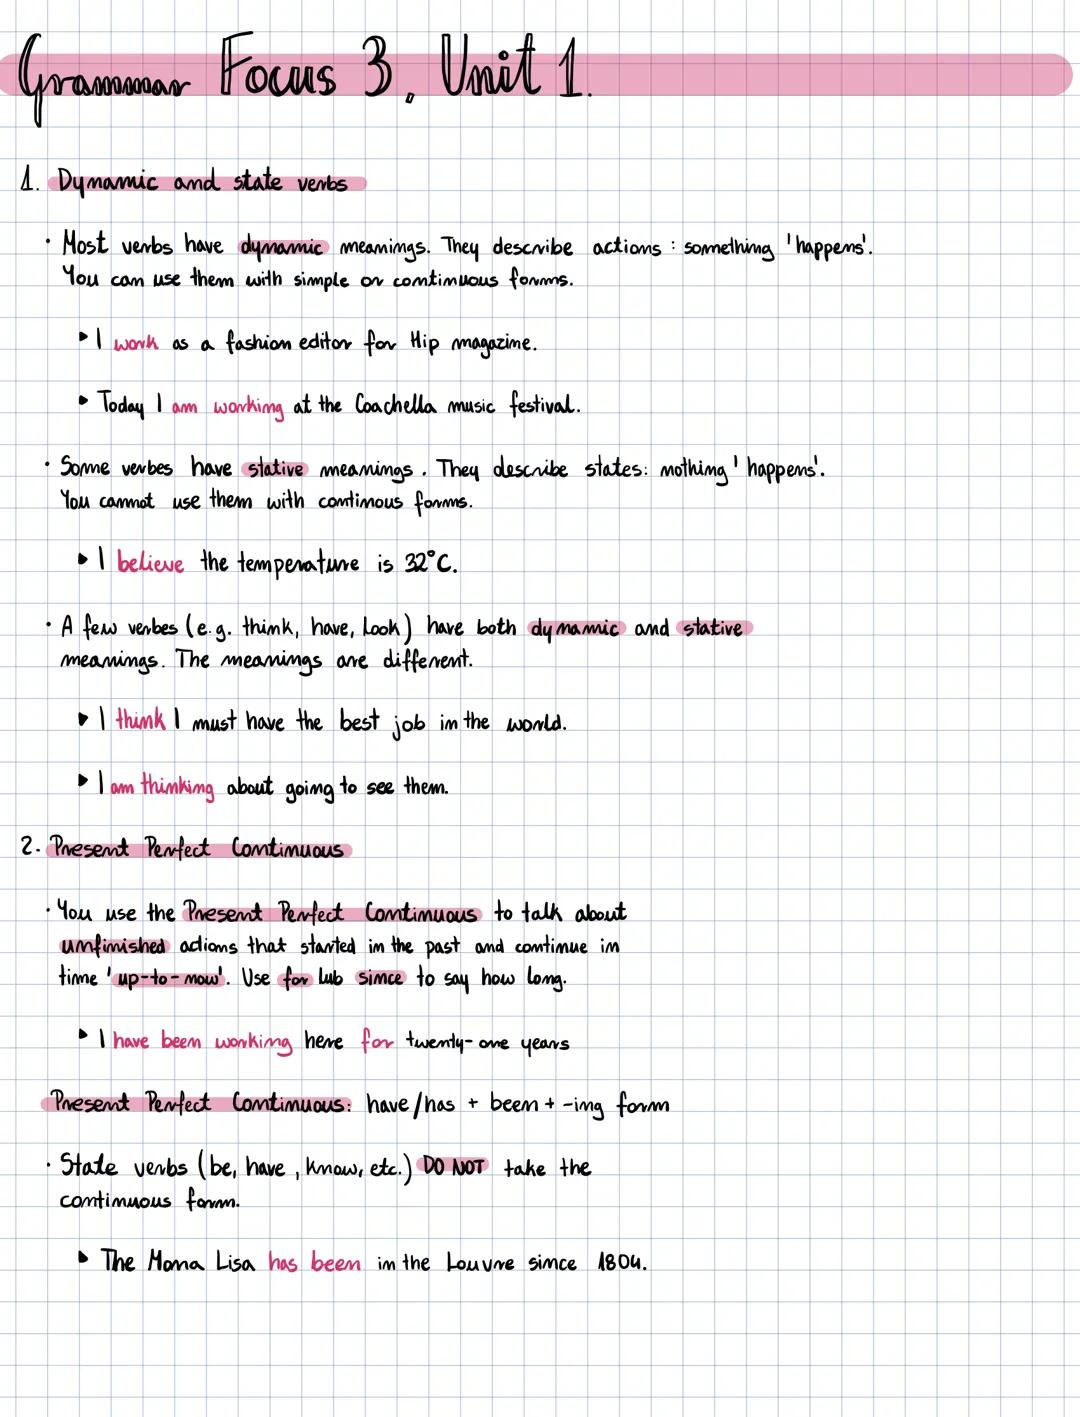 Grammar Focus 3, Unit 1.
1. Dynamic and state verbs
· Most verbs have dynamic meanings. They describe actions: something 'happens'.
You can use them with simple or continuous forms.
▸ I work as a fashion editor for Hip magazine.
▸ Today I am working at the Coachella music festival.
· Some verbes have stative meanings. They describe states: nothing 'happens'.
You cannot use them with continous forms.
▸ I believe the temperature is 32°C.
· A few verbes (e.g. think, have, look) have both dynamic and stative
meanings. The meanings are different.
▸ I think I must have the best job in the world.
▸ I am thinking about going to see them.
2. Present Perfect Continuous
· You use the Present Perfect Continuous to talk about
unfinished actions that started in the past and continue in
time 'up-to-now'. Use for lub since to say how long.
▸ I have been working here for twenty-one years
Present Perfect Continuous: have/has + been + -ing form
· State verbs (be, have, know, etc.) DO NOT take the
continuous form.
▸ The Mona Lisa has been in the Louvre since 1804.